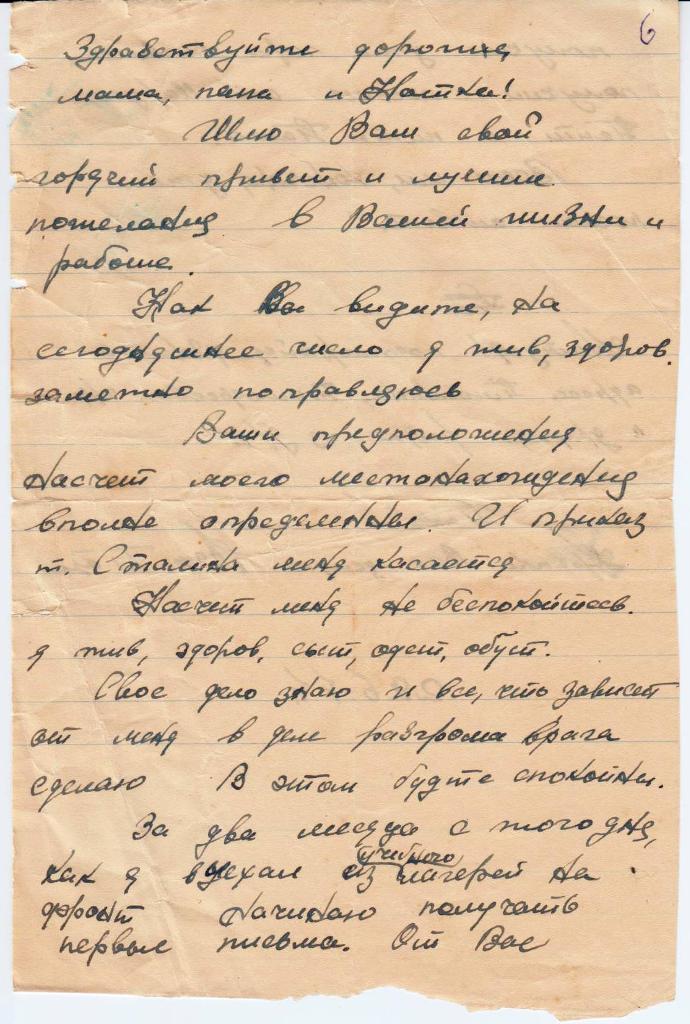 6
Здравствуйте дорогие
мама, папа и Натка!
Шлю Вам свой
горячий привет и лучшие
пожелания в Вашей жизни и
работе.
Как Вы видите, на
сегодняшнее число я жив, здоров.
заметно поправляюсь
Ваши предположения
насчет моего местонахождения
вполне определенны. И приказ
т. Сталина меня касается
Насчет меня не беспокойтесь.
я жив, здоров, сыт, одет, обут.
Свое дело знаю и все, что зависет
от меня в деле разгрома врага
сделаю В этом будте спокойны.
За два месяца с того дня,
учебного
как я выехал из лагерей на
фронт начинаю получать
первые письма. От Вас